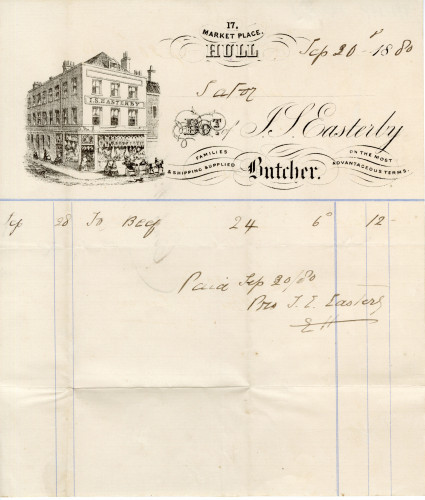 17.
MARKET PLACE.
HULL
Sep 20 1880
I.S. EASTERBY
Bot. of I. S. Easterby
FAMILIES & SHIPPING SUPPLIED
Butcher.
ON THE MOST ADVANTAGEOUS TERMS.
Sep To Beef 24 6d 12 -
Paid Sep 20/80
Pro I. S. Easterby